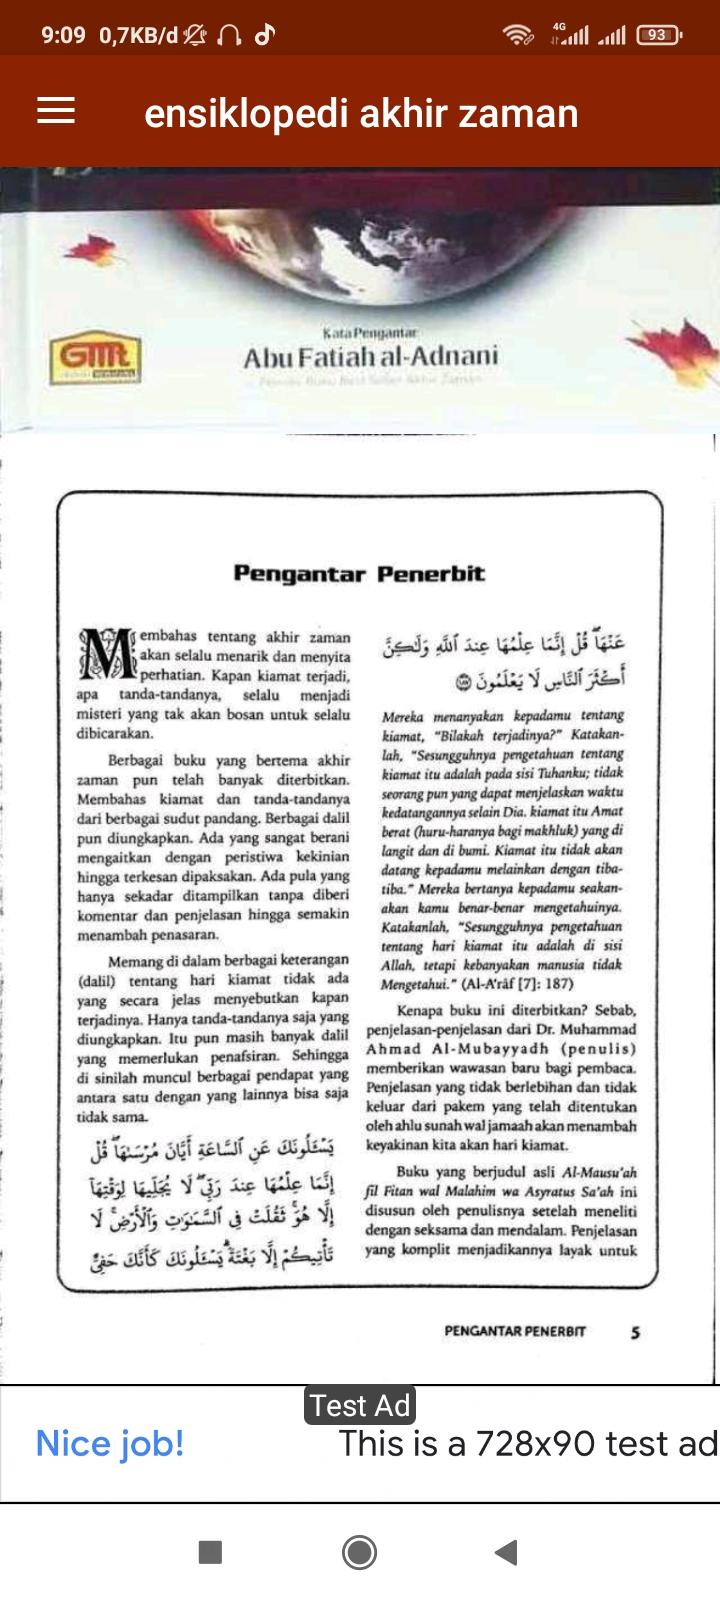 9:09 0,7KB/d
4G
93
ensiklopedi akhir zaman
Kata Pengantar
Abu Fatiah al-Adnani
GMt
Pengantar Penerbit
Membahas tentang akhir zaman
akan selalu menarik dan menyita
perhatian. Kapan kiamat terjadi,
apa tanda-tandanya, selalu menjadi
misteri yang tak akan bosan untuk selalu
dibicarakan.
Berbagai buku yang bertema akhir
zaman pun telah banyak diterbitkan.
Membahas kiamat dan tanda-tandanya
dari berbagai sudut pandang. Berbagai dalil
pun diungkapkan. Ada yang sangat berani
mengaitkan dengan peristiwa kekinian
hingga terkesan dipaksakan. Ada pula yang
hanya sekadar ditampilkan tanpa diberi
komentar dan penjelasan hingga semakin
menambah penasaran.
Memang di dalam berbagai keterangan
(dalil) tentang hari kiamat tidak ada
yang secara jelas menyebutkan kapan
terjadinya. Hanya tanda-tandanya saja yang
diungkapkan. Itu pun masih banyak dalil
yang memerlukan penafsiran. Sehingga
di sinilah muncul berbagai pendapat yang
antara satu dengan yang lainnya bisa saja
tidak sama.
يَسْـَٔلُونَكَ عَنِ ٱلسَّاعَةِ أَيَّانَ مُرْسَىٰهَا ۖ قُلْ
إِنَّمَا عِلْمُهَا عِندَ رَبِّى ۖ لَا يُجَلِّيهَا لِوَقْتِهَآ
إِلَّا هُوَ ۚ ثَقُلَتْ فِى ٱلسَّمَـٰوَٰتِ وَٱلْأَرْضِ ۚ لَا
تَأْتِيكُمْ إِلَّا بَغْتَةً ۗ يَسْـَٔلُونَكَ كَأَنَّكَ حَفِىٌّ
عَنْهَا ۖ قُلْ إِنَّمَا عِلْمُهَا عِندَ ٱللَّهِ وَلَـٰكِنَّ
أَكْثَرَ ٱلنَّاسِ لَا يَعْلَمُونَ ١٨٧
Mereka menanyakan kepadamu tentang
kiamat, “Bilakah terjadinya?” Katakan-
lah, “Sesungguhnya pengetahuan tentang
kiamat itu adalah pada sisi Tuhanku; tidak
seorang pun yang dapat menjelaskan waktu
kedatangannya selain Dia. kiamat itu Amat
berat (huru-haranya bagi makhluk) yang di
langit dan di bumi. Kiamat itu tidak akan
datang kepadamu melainkan dengan tiba-
tiba.” Mereka bertanya kepadamu seakan-
akan kamu benar-benar mengetahuinya.
Katakanlah, “Sesungguhnya pengetahuan
tentang hari kiamat itu adalah di sisi
Allah, tetapi kebanyakan manusia tidak
Mengetahui.” (Al-A'râf [7]: 187)
Kenapa buku ini diterbitkan? Sebab,
penjelasan-penjelasan dari Dr. Muhammad
Ahmad Al-Mubayyadh (penulis)
memberikan wawasan baru bagi pembaca.
Penjelasan yang tidak berlebihan dan tidak
keluar dari pakem yang telah ditentukan
oleh ahlu sunah wal jamaah akan menambah
keyakinan kita akan hari kiamat.
Buku yang berjudul asli Al-Mausu'ah
fil Fitan wal Malahim wa Asyratus Sa'ah ini
disusun oleh penulisnya setelah meneliti
dengan seksama dan mendalam. Penjelasan
yang komplit menjadikannya layak untuk
PENGANTAR PENERBIT 5
Test Ad
Nice job! This is a 728x90 test ad